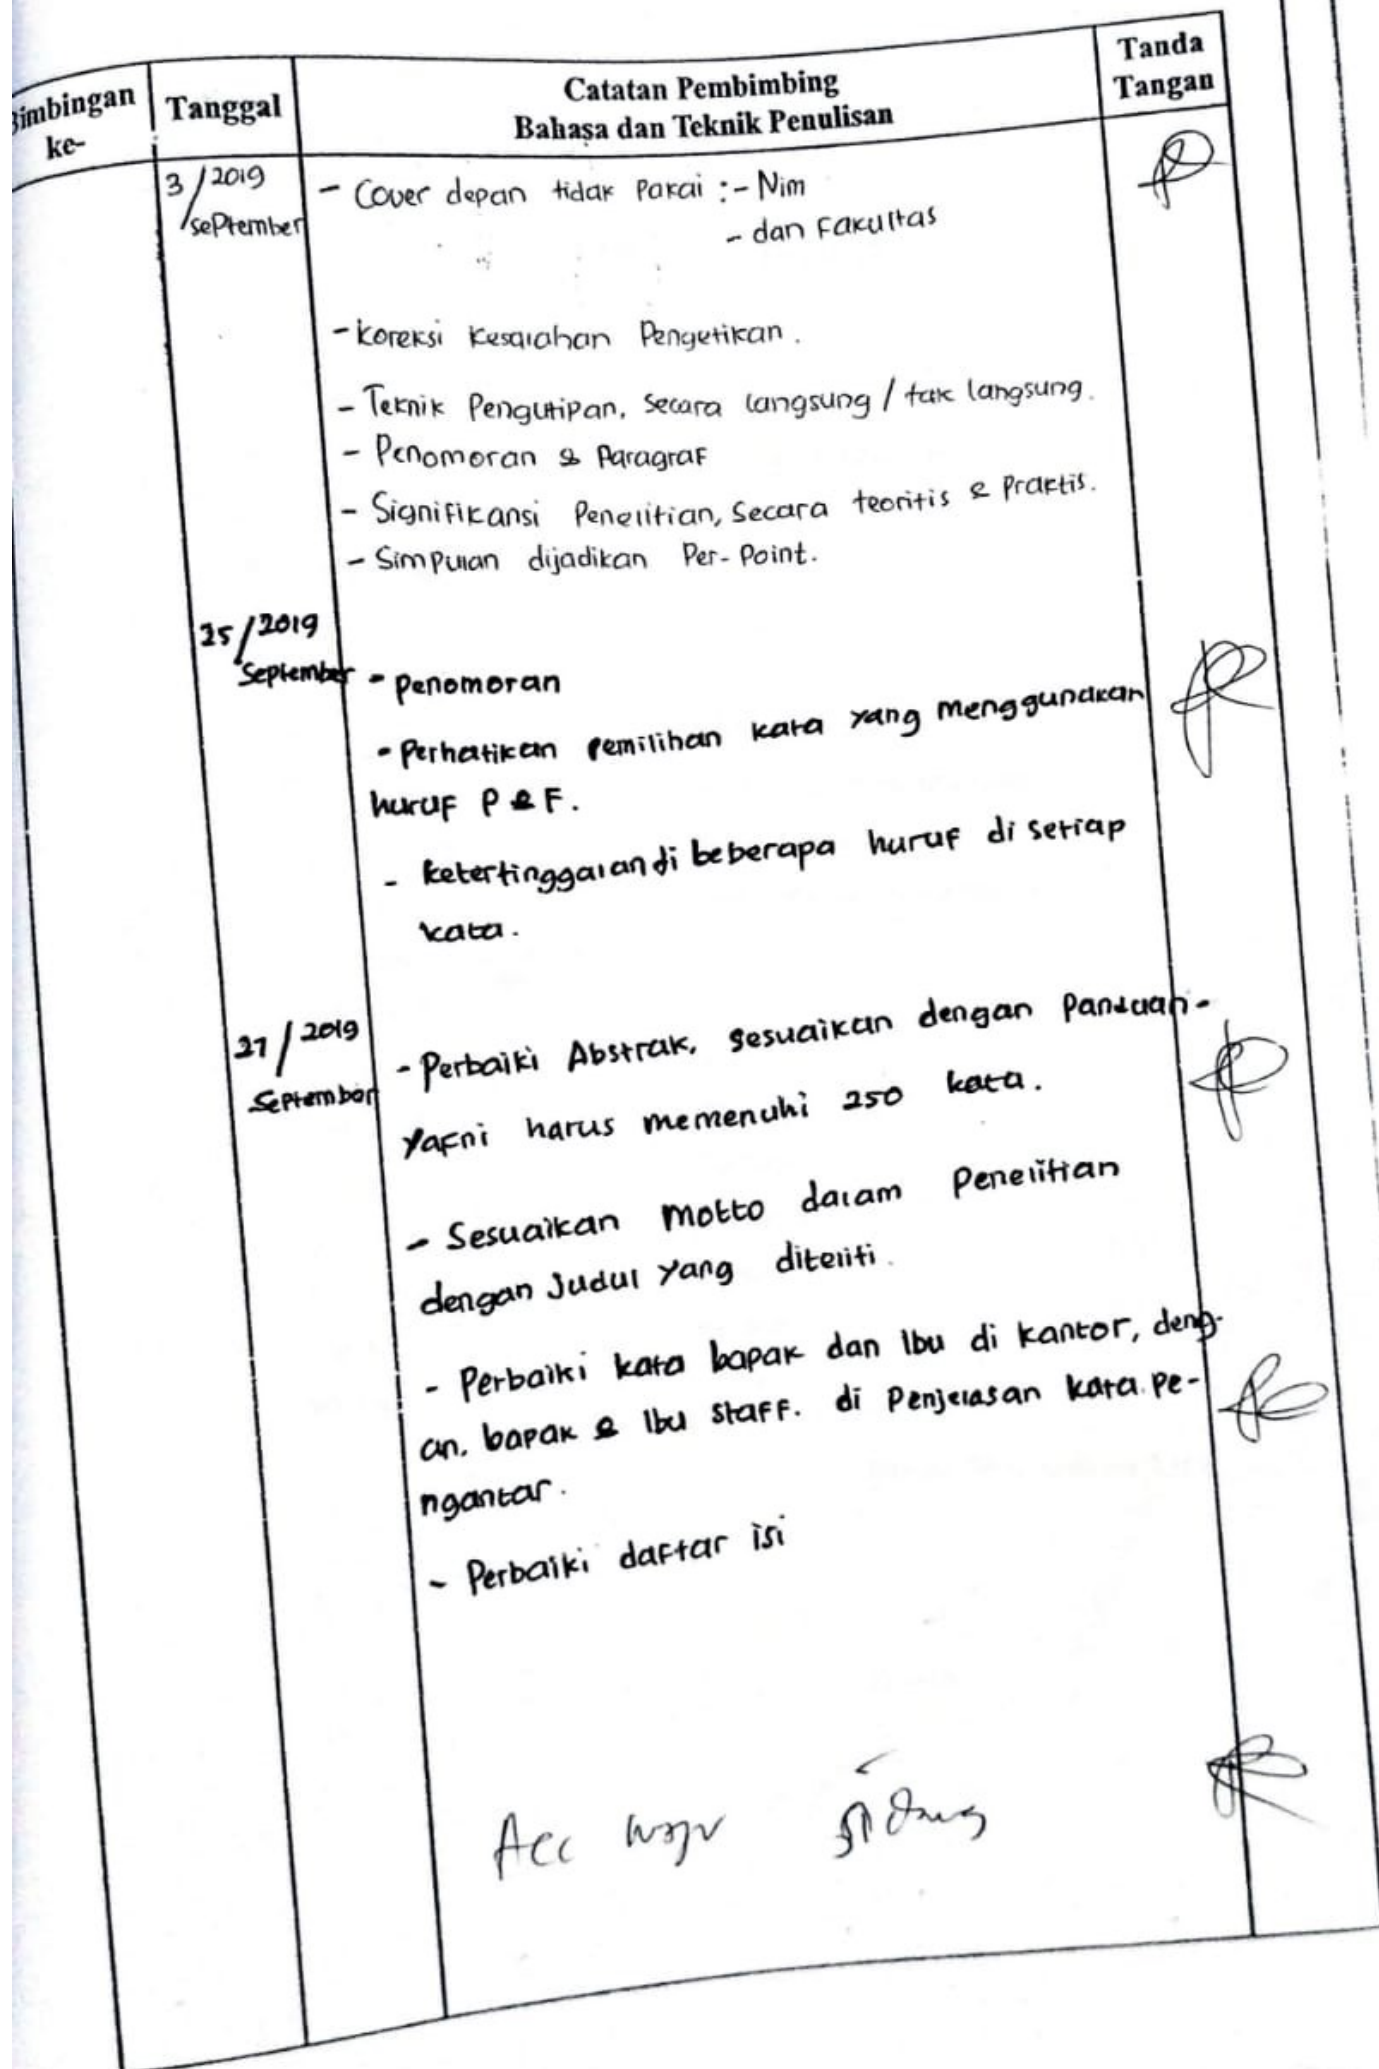 Bimbingan ke-
Tanggal
Catatan Pembimbing
Bahasa dan Teknik Penulisan
Tanda
Tangan
3/2019
September
- Cover depan tidak pakai :- Nim
- dan Fakultas
- Koreksi Kesalahan Pengetikan.
- Teknik Pengutipan, secara langsung / tak langsung.
- Penomoran & Paragraf
- Signifikansi Penelitian, Secara teoritis & Praktis.
- Simpulan dijadikan Per-Point.
25/2019
September
- penomoran
- Perhatikan pemilihan kata yang menggunakan
huruf P & F.
- ketertinggalan di beberapa huruf di setiap
kata.
27/2019
September
- Perbaiki Abstrak, sesuaikan dengan Panduan-
yakni harus memenuhi 250 kata.
- Sesuaikan Motto dalam Penelitian
dengan Judul yang diteliti.
- Perbaiki kata bapak dan Ibu di kantor, deng-
an. bapak & Ibu staff. di Penjelasan kata pe-
ngantar.
- Perbaiki daftar isi
Acc sidang